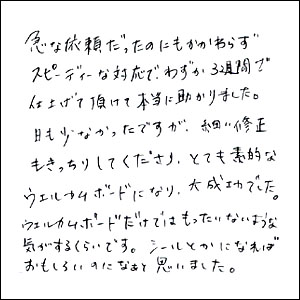 急な依頼だったのにもかかわらず
スピーディーな対応で、わずか3週間で
仕上げて頂けて本当に助かりました。
日も少なかったですが、細い修正
もきっちりしてくださり、とても素的な
ウェルカムボードになり、大成功でした。
ウェルカムボードだけではもったいないような
気がするくらいです。シールとかになれば
おもしろいのになぁと思いました。